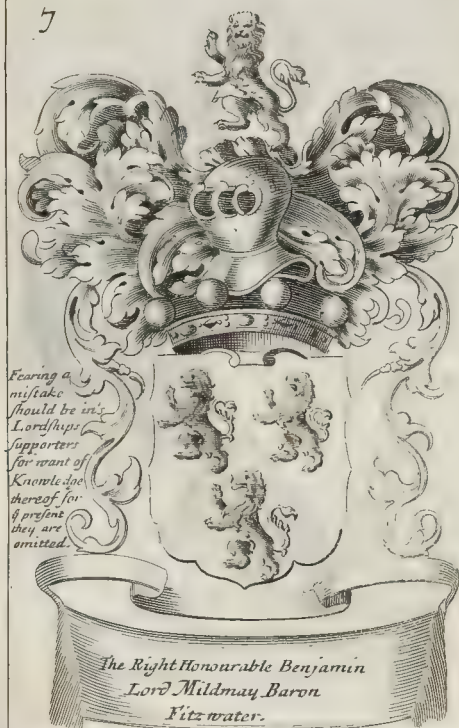 7
Fearing a
mistake
should be in's
Lordships
supporters
for want of
Knowledge
thereof for
ẏ present
they are
omitted.
The Right Honourable Benjamin
Lord Mildmay Baron
Fitzwater.